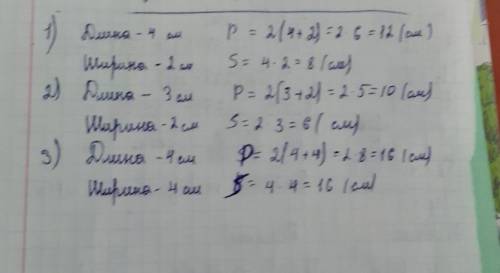 1) Длина - 4 см P = 2(4+2)=2·6=12(см)
Ширина - 2 см S = 4·2=8(см)
2) Длина - 3 см P = 2(3+2)=2·5=10(см)
Ширина - 2 см S = 2·3=6( см)
3) Длина - 4 см P = 2(4+4)=2·8=16(см)
Ширина - 4 см S = 4·4=16 (см)